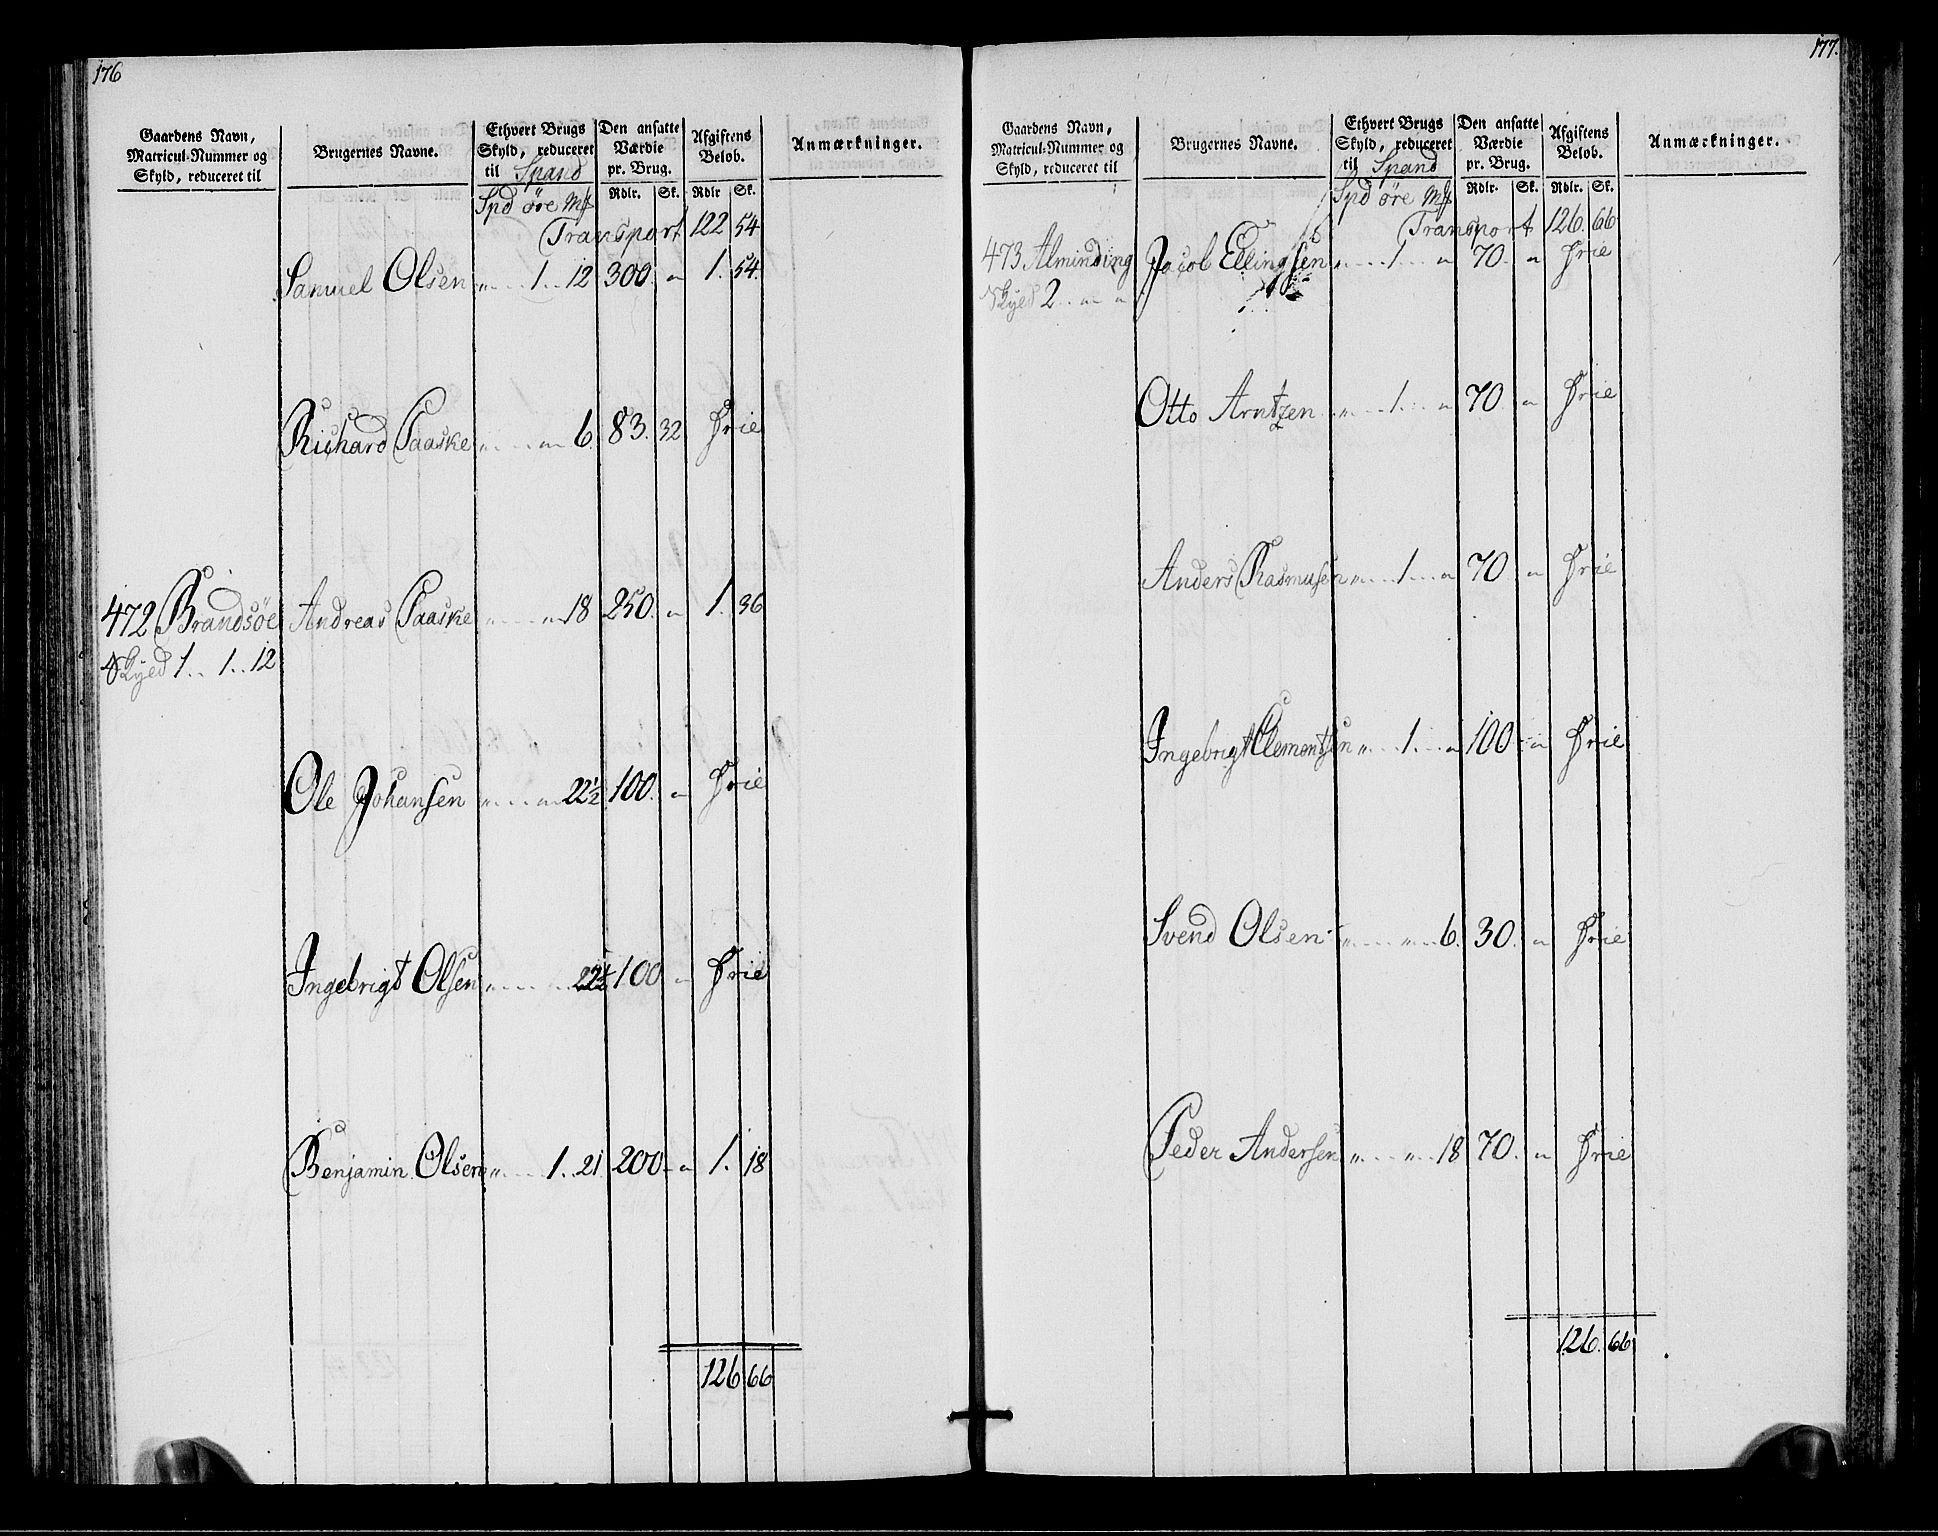 176
Gaardens Navn,
Matricul-Nummer og
Skyld, reduceret til
Brugernes Navne.
Ethvert Brugs
Skyld, reduceret
til Spand
Den ansatte
Værdie
pr. Brug.
Afgiftens
Beløb.
Anmærkninger.
Spd öre Mk
Rdlr. Sk. Rdlr Sk.
Transport 122 54
Samuel Olsen " 1 12 300 " 1. 54.
Richard Paaske " " 6. 83. 32 Frie
472 Brandsöe Andreas Paaske " " 18 250. " 1. 36
Skyld 1 .. 1 .. 12
Ole Johansen " " 22½ 100. " Frie
Ingebrigt Olsen " " 22½ 100 " Frie
Benjamin Olsen " 1 .. 21 200 " 1. 18
126 66
177.
Gaardens Navn,
Matricul-Nummer og
Skyld, reduceret til
Brugernes Navne.
Ethvert Brugs
Skyld, reduceret
til Spand
Den ansatte
Værdie
pr. Brug.
Afgiftens
Beløb.
Anmærkninger.
Spd öre Mk
Rdlr. Sk. Rdlr. Sk.
Transport 126. 66
473 Alminding Jacob Ellingsen " 1 " 70 " Frie
Skyld 2 .. " "
Otto Arntzen " 1 " 70. " Frie
Anders Rasmusen " 1 " 70 " Frie
Ingebrigt Clementsen " 1 " 100 " Frie
Svend Olsen " " 6. 30. " Frie
Peder Andersen " " 18 70. " Frie
126. 66